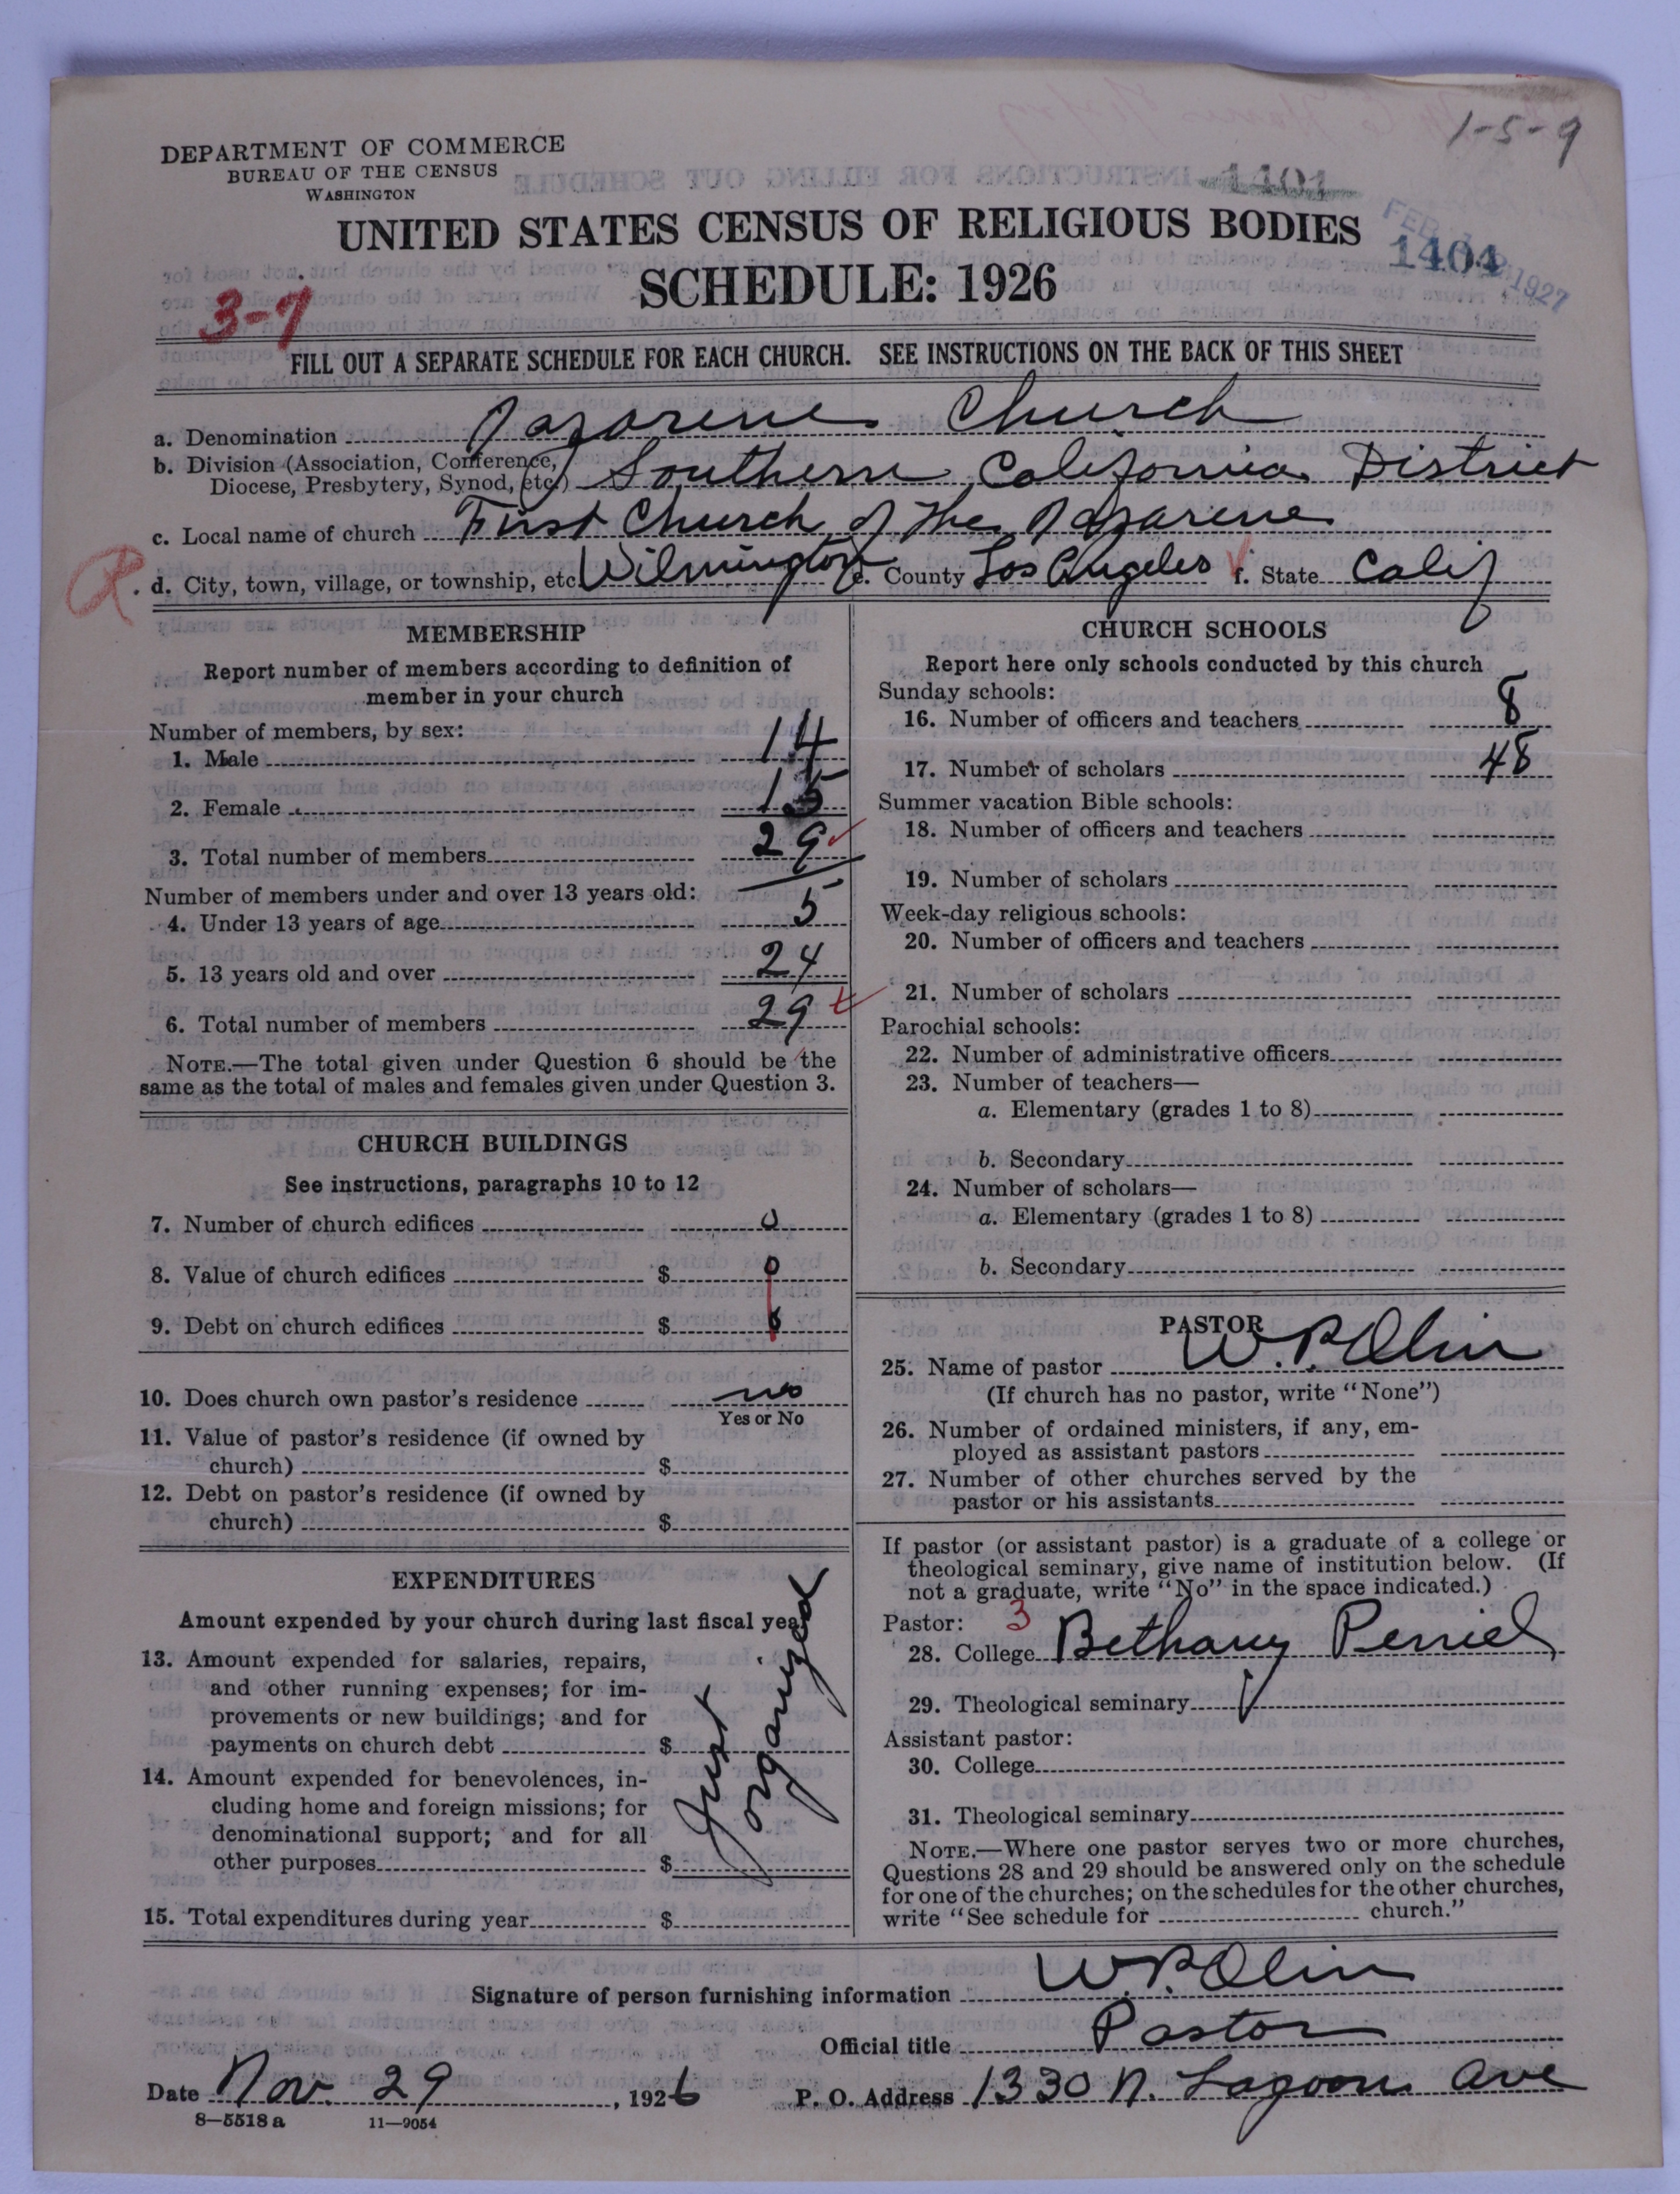 1-5-9
DEPARTMENT OF COMMERCE
BUREAU OF THE CENSUS
WASHINGTON
1401
UNITED STATES CENSUS OF RELIGIOUS BODIES
SCHEDULE: 1926
FEB 1927
1404
3-7
FILL OUT A SEPARATE SCHEDULE FOR EACH CHURCH. SEE INSTRUCTIONS ON THE BACK OF THIS SHEET
a. Denomination Nazarene Church
b. Division (Association, Conference,
Diocese, Presbytery, Synod, etc.) Southern California District
c. Local name of church First Church of the Nazarene
R
d. City, town, village, or township, etc. Wilmington e. County Los Angeles f. State Calif
MEMBERSHIP
Report number of members according to definition of
member in your church
Number of members, by sex:
1. Male 14
2. Female 15
3. Total number of members 29
Number of members under and over 13 years old:
4. Under 13 years of age 5
5. 13 years old and over 24
6. Total number of members 29
NOTE.—The total given under Question 6 should be the
same as the total of males and females given under Question 3.
CHURCH BUILDINGS
See instructions, paragraphs 10 to 12
7. Number of church edifices 0
8. Value of church edifices $ 0
9. Debt on church edifices $ 0
10. Does church own pastor's residence no
Yes or No
11. Value of pastor's residence (if owned by
church) $
12. Debt on pastor's residence (if owned by
church) $
EXPENDITURES
Amount expended by your church during last fiscal year
13. Amount expended for salaries, repairs,
and other running expenses; for im-
provements or new buildings; and for
payments on church debt $
14. Amount expended for benevolences, in-
cluding home and foreign missions; for
denominational support; and for all
other purposes $
Just
organized
15. Total expenditures during year $
CHURCH SCHOOLS
Report here only schools conducted by this church
Sunday schools:
16. Number of officers and teachers 8
17. Number of scholars 48
Summer vacation Bible schools:
18. Number of officers and teachers
19. Number of scholars
Week-day religious schools:
20. Number of officers and teachers
21. Number of scholars
Parochial schools:
22. Number of administrative officers
23. Number of teachers—
a. Elementary (grades 1 to 8)
b. Secondary
24. Number of scholars—
a. Elementary (grades 1 to 8)
b. Secondary
PASTOR
25. Name of pastor W. P. Olin
(If church has no pastor, write "None")
26. Number of ordained ministers, if any, em-
ployed as assistant pastors
27. Number of other churches served by the
pastor or his assistants
If pastor (or assistant pastor) is a graduate of a college or
theological seminary, give name of institution below. (If
not a graduate, write "No" in the space indicated.)
Pastor: 3
28. College Bethany Peniel
29. Theological seminary
Assistant pastor:
30. College
31. Theological seminary
NOTE.—Where one pastor serves two or more churches,
Questions 28 and 29 should be answered only on the schedule
for one of the churches; on the schedules for the other churches,
write "See schedule for church."
Signature of person furnishing information W. P. Olin
Official title Pastor
Date Nov. 29, 1926 P. O. Address 1330 N. Lagoon Ave
8—5518 a 11—9054